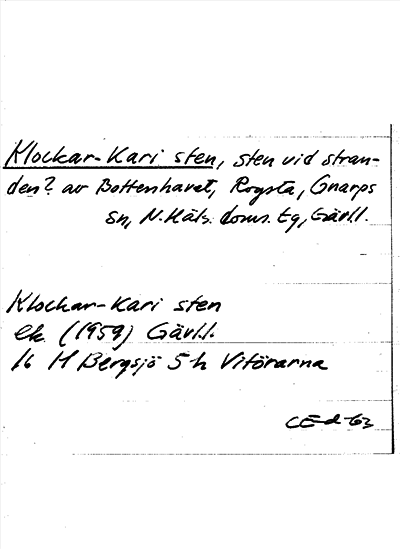 Klockar-Kari sten, sten vid stran-
den? av Bottenhavet, Rogsta, Gnarps
sn, N. Häls. doms. tg, Gävl.l.
Klockar-Kari sten
ek (1959) Gävl.l.
16 H Bergsjö 5 h Vitörarna